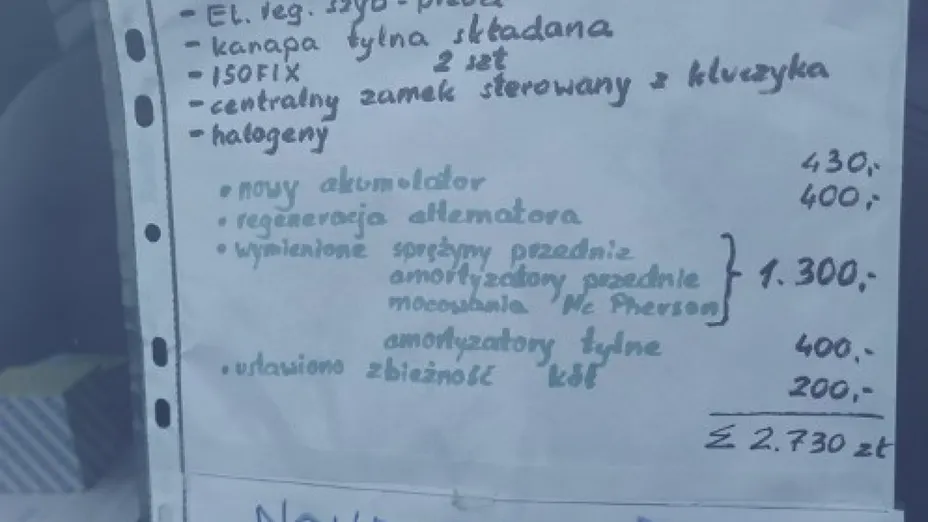 - El. reg. szyb - przód
- kanapa tylna składana
- ISOFIX 2 szt
- centralny zamek sterowany z kluczyka
- halogeny
• nowy akumulator 430,-
• regeneracja alternatora 400,-
• wymienione sprężyny przednie
amortyzatory przednie } 1.300,-
mocowania Mc Pherson
amortyzatory tylne 400,-
• ustawiono zbieżność kół 200,-
Σ 2.730 zł